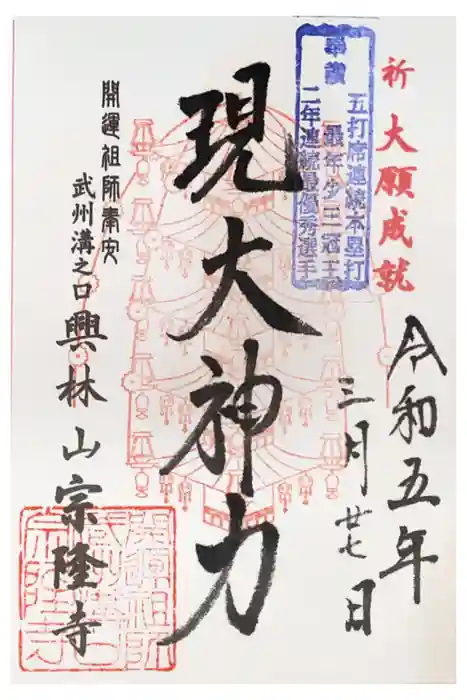 祈 大願成就
奉讃
五打席連続本塁打
最年少三冠王
二年連続最優秀選手
令和五年
三月廿七日
現大神力
開運祖師奉安
武州溝之口
興林山宗隆寺
開運祖師
武州溝口
宗隆寺